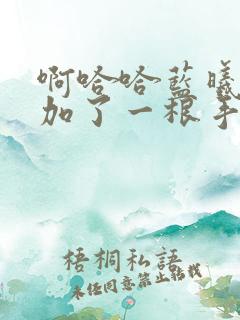 啊哈哈蓝曦
加了一根手
梧桐私語
未经同意禁止转载